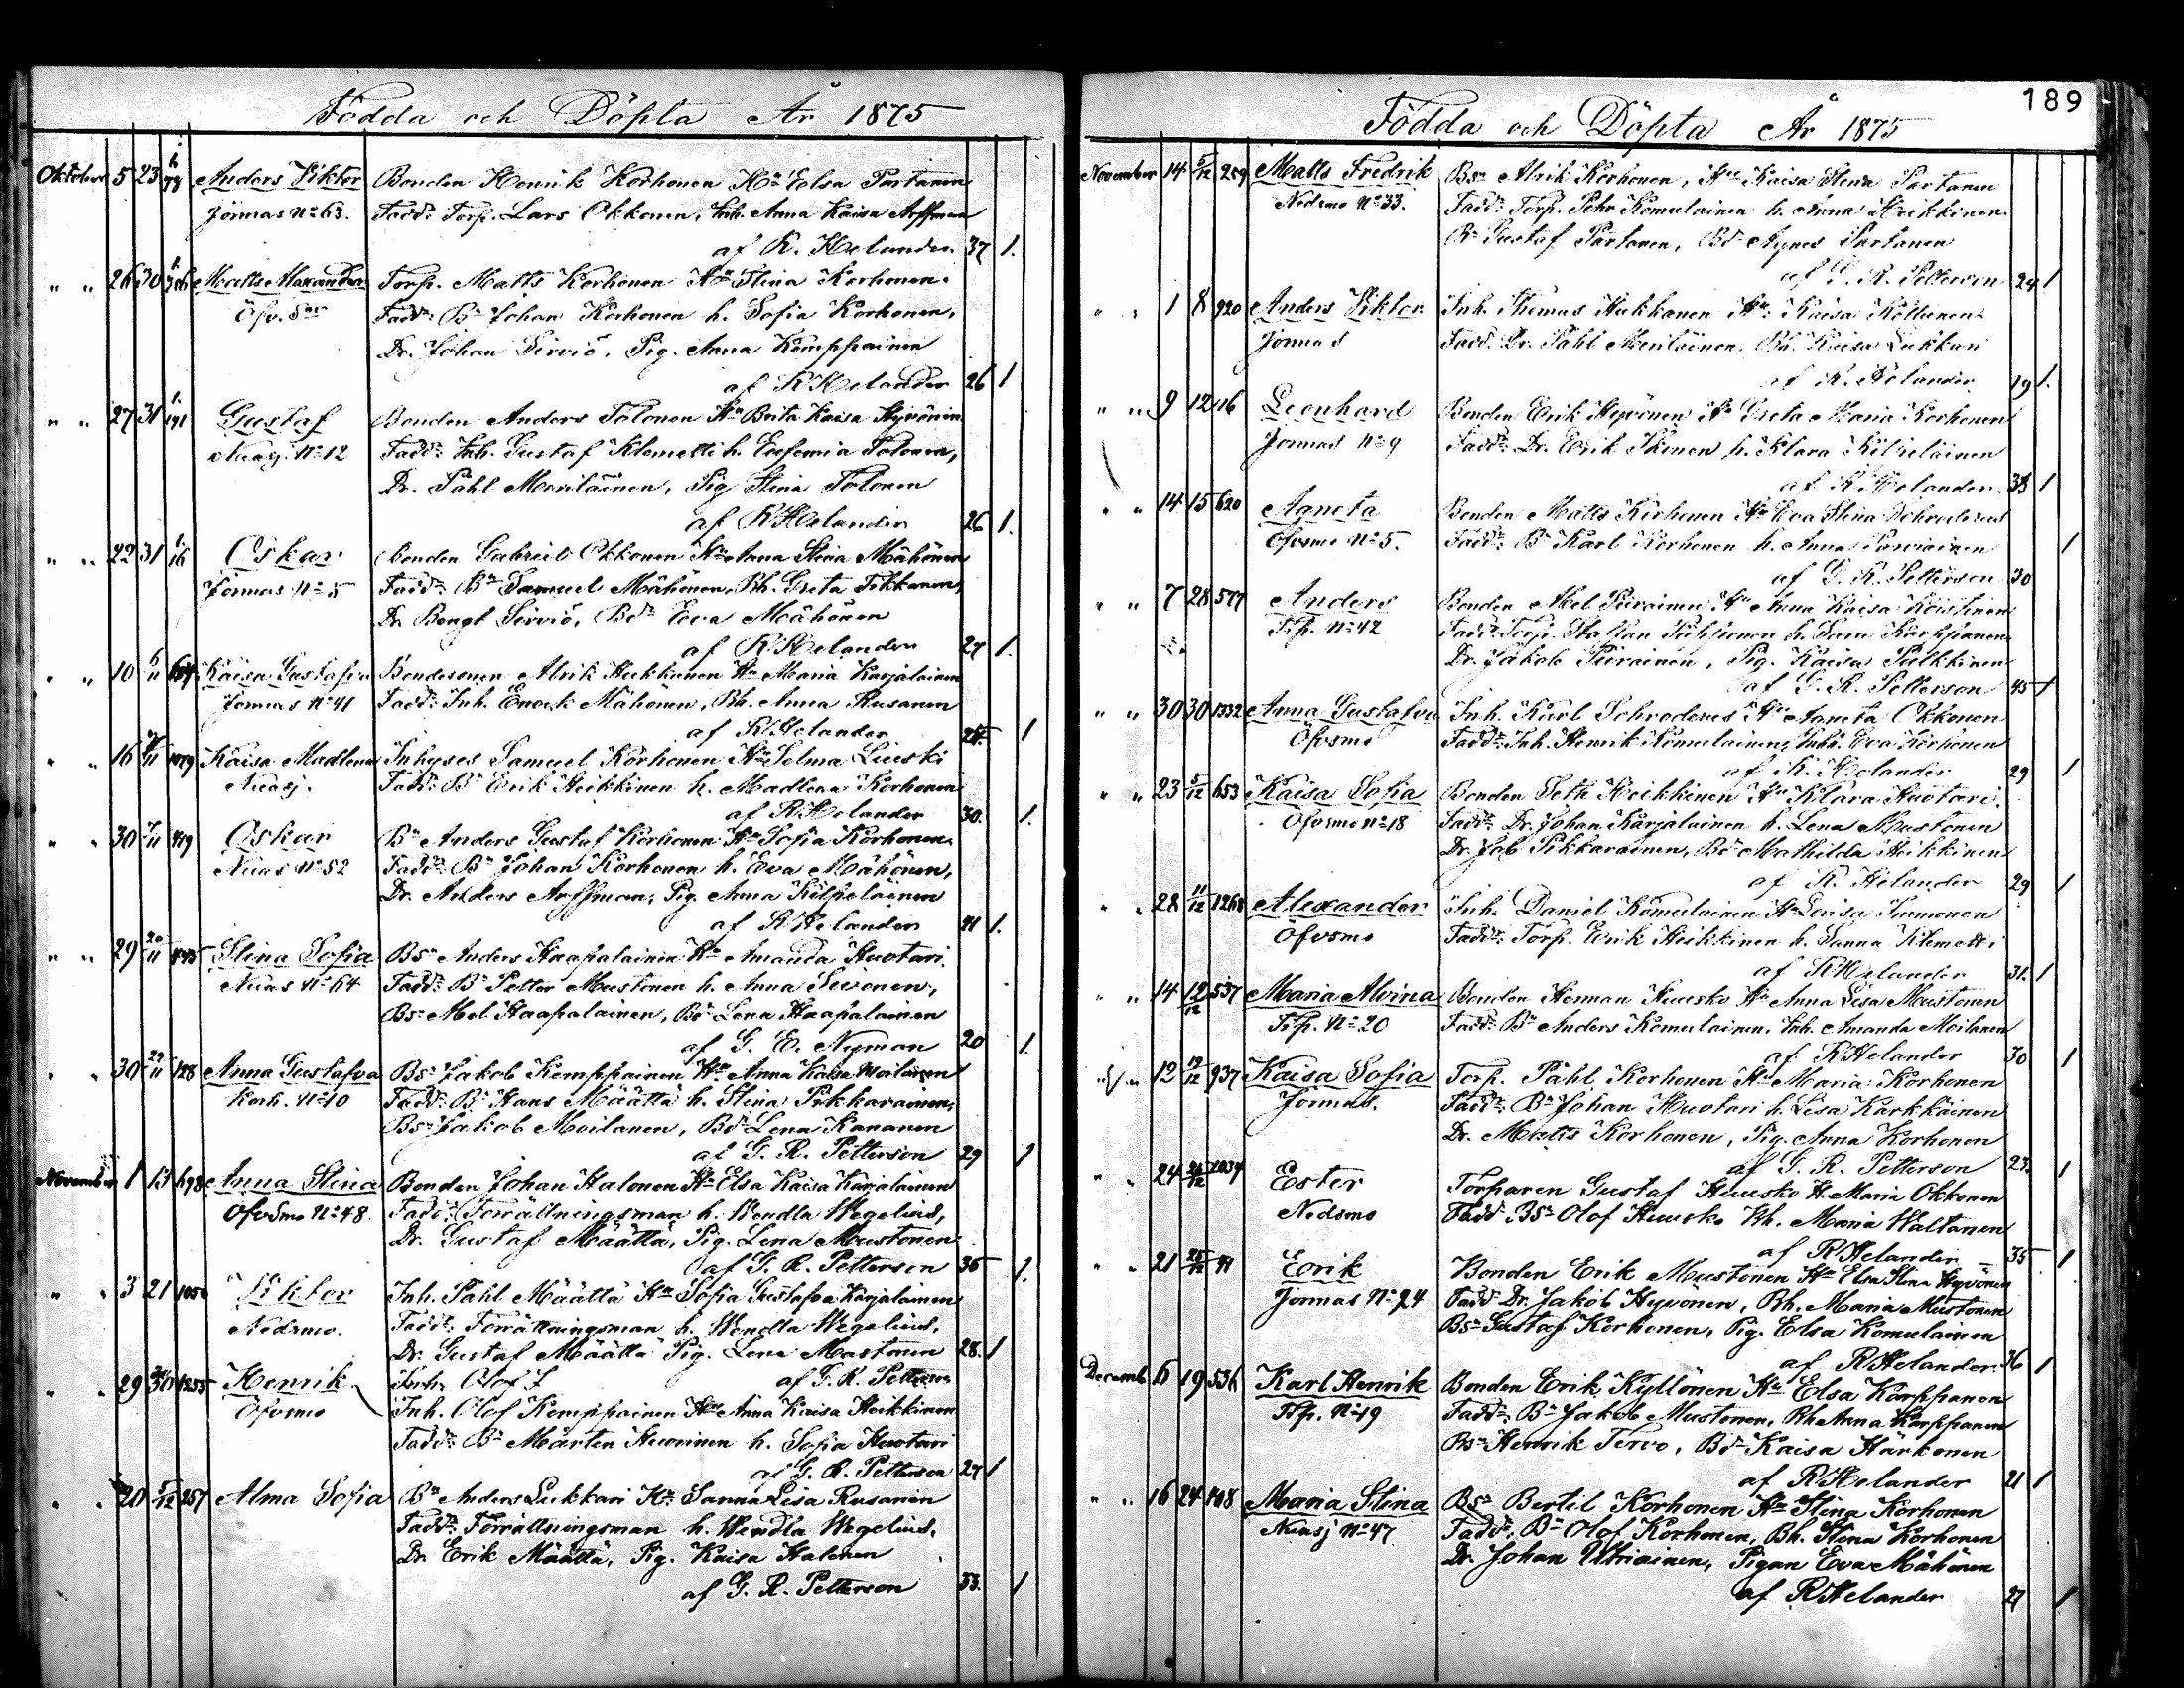 Födda och Döpta År 1875
Oktober 5 23 Anders Viktor Bonden Henrik Korhonen Hu Elsa Partanen
Jormas No 63. Fadd: Torp. Lars Okkonen, Inh. Anna Kaisa Arffman
af R. Helander 37 1.
" " 26 30 Matts Alexander Torp. Matts Korhonen Hu Stina Korhonen.
Öfv. Fadd: Bn Johan Korhonen h. Sofia Korhonen,
Dr. Johan Sirviö, Pig. Anna Kemppainen
af R Helander 26 1
" " 27 31 Gustaf Bonden Anders Tolonen Hu Brita Kaisa Hyvönen
No 12 Fadd: Inh. Gustaf Klemetti h. Eufemia Tolonen,
Dr. Påhl Meriläinen, Pig Stina Tolonen
af R Helander 26 1.
" " 22 31 16 Oskar Bonden Gabriel Okkonen Hu Anna Stina Mähönen
Jormas No 5 Fadd: Bn Samuel Mähönen, Bh. Greta Tikkanen,
Dr Bengt Sirviö, Bdr Eva Mähönen
af R Helander 27 1.
" " 10 6/11 Kaisa Gustafva Bondesonen Alrik Hukkanen Hu Maria Karjalainen
Jormas No 41 Fadd: Inh. Enock Mähönen, Bh. Anna Rusanen
af R Helander 1
" " 16 1079 Kaisa Madlena Inhyses Samuel Korhonen Hu Selma Liuski
Nuasj. Fadd: Bn Erik Heikkinen h. Madlena Korhonen
af R Helander 30. 1.
" " 30 7/11 Oskar Bn Anders Gustaf Korhonen Hu Sofia Korhonen.
Nuas No 52 Fadd: Bn Johan Korhonen h. Eva Mähönen,
Dr. Anders Arffman, Pig Anna Kilpeläinen
af R Helander 41 1.
" " 29 20/11 Stina Sofia Bsn Anders Haapalainen Hu Amanda Huotari.
Nuas No 64 Fadd: Bn Petter Mustonen h. Anna
Bsn Abel Haapalainen, Bdr Lena Haapalainen
af G. E. Nyman 20 1.
" " 30 128 Anna Gustafva Bsn Jakob Kemppainen Hu Anna Kaisa Moilanen
Korh. No 10 Fadd: Bn Hans Määttä h. Stina Pikkarainen,
Bsn Jakob Moilanen, Bdr Lena Kananen
af G. R. Petterson 29 1
November 1 13 698 Anna Stina Bonden Johan Halonen Hu Elsa Kaisa Karjalainen
Öfvsmo No 48. Fadd: Förrättningsman h. Wendla Wegelius,
Dr. Gustaf Määttä, Pig. Lena Mustonen
af G. R. Petterson 36 1.
" " 3 21 Viktor Inh. Påhl Määttä Hu Sofia Gustafva Karjalainen
Nedsmo. Fadd: Förrättningsman h. Wendla Wegelius,
Dr. Gustaf Määttä Pig. Lena Mustonen 28. 1
" " 29 30 1255 Henrik Inh. Olof af G. R. Petterson
Öfvsmo Inh. Olof Kemppainen Hu Anna Kaisa Heikkinen
Fadd: Bn Mårten Huovinen h. Sofia Huotari
af G. R. Petterson 27 1
" " 20 5/12 257 Alma Sofia Bn Anders Lukkari Hu Sanna Lisa Rusanen
Fadd: Förrättningsman h. Wendla Wegelius,
Dr. Erik Määttä, Pig. Kaisa Halonen
af G. R. Petterson 33. 1
189
Födda och Döpta År 1875
November 14 5/12 259 Matts Fredrik Bsn Alrik Korhonen, Hu Kaisa Stina Partanen
Nedsmo No 33. Fadd: Torp. Pehr Komulainen h. Anna Heikkinen
Bn Gustaf Partanen, Bdr Agnes Partanen
af G. R. Petterson 24 1
" " 1 8 920 Anders Viktor Inh. Thomas Hukkanen Hu Kaisa Kottunen.
Jormas Fadd: Dr. Påhl Meriläinen, Bh. Kaisa Lukkari
af R. Helander 19 1.
" " 9 12 116 Leonhard Bonden Erik Hyvönen Hu Greta Maria Korhonen
Jormas No 9 Fadd: Dr. Erik h. Klara Kilpeläinen
af R Helander. 33 1
" " 14 15 620 Agneta Bonden Matts Korhonen Hu Eva Stina Schroderus
Öfvsmo No 5. Fadd: Bn Karl Korhonen h. Anna 1
af G. R. Petterson 30
" " 7 28 577 Anders Bonden Abel Piirainen Hu Anna Kaisa Koistinen
No 42 Fadd: Torp. Staffan h. Sara Karppanen
Dr. Jakob Piirainen, Pig. Kaisa Pulkkinen
af G. R. Petterson 45 1
" " 30 30 1332 Anna Gustafva Inh. Karl Schroderus Hu Agneta Okkonen
Öfvsmo Fadd: Inh. Henrik Komulainen, Inh. Eva Korhonen
af R. Helander 29 1
" " 23 5/12 653 Kaisa Sofia Bonden Seth Heikkinen Hu Klara Huotari.
Öfvsmo No 18 Fadd: Dr. Johan Karjalainen h. Lena Mustonen
Dr. Jab Pikkarainen, Bdr Mathilda Heikkinen
af R. Helander 29 1
" " 28 11/12 1268 Alexander Inh. Daniel Komulainen Hu Lovisa Immonen
Öfvsmo Fadd: Torp. Erik Heikkinen h. Sanna Klemetti
af R Helander 31. 1
" " 14 12/12 537 Maria Alvina Bonden Herman Huusko Hu Anna Lisa Mustonen
No 20 Fadd: Bn Anders Komulainen, Inh. Amanda Moilanen
af R Helander 30 1
" " 12 19/12 937 Kaisa Sofia Torp. Påhl Korhonen Hu Maria Korhonen
Jormas. Fadd: Bn Johan Huotari h. Lisa Karkkäinen
Dr. Matts Korhonen, Pig. Anna Korhonen
af G. R. Petterson 23. 1
" " 24 1034 Ester Torparen Gustaf Huusko H. Maria Okkonen
Nedsmo Fadd: Bsn Olof Huusko Bh. Maria Waltanen
af R Helander 35 1
" " 21 Erik Bonden Erik Mustonen Hu Elsa Stina Hyvönen
Jormas No 24 Fadd Dr. Jakob Hyvönen, Bh. Maria Mustonen
Bsn Gustaf Korhonen, Pig. Elsa Komulainen
af R Helander. 36 1
Decemb 6 19 536 Karl Henrik Bonden Erik Kyllönen Hu Elsa Karppanen
No 19 Fadd: Bn Jakob Mustonen, Bh Anna Karppanen
Bsn Henrik Tervo, Bdr Kaisa Härkönen
af R Helander 21 1
" " 16 24 Maria Stina Bsn Bertil Korhonen Hu Stina Korhonen
Nuasj No 47 Fadd: Bn Olof Korhonen, Bh. Stina Korhonen
Dr. Johan Utriainen, Pigan Eva Mähönen
af R Helander 27 1